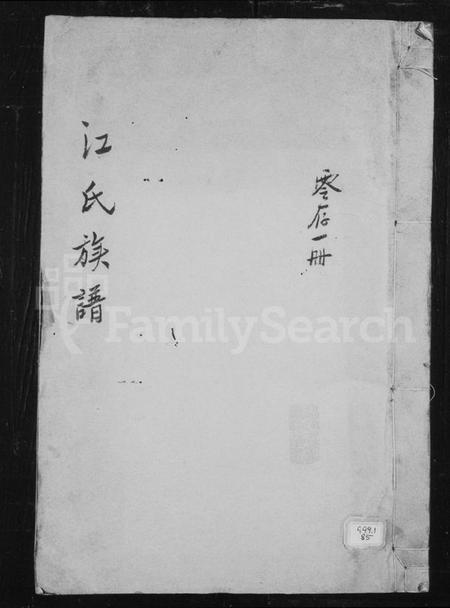 零存一冊
江氏族譜
FamilySearch
999.1
85